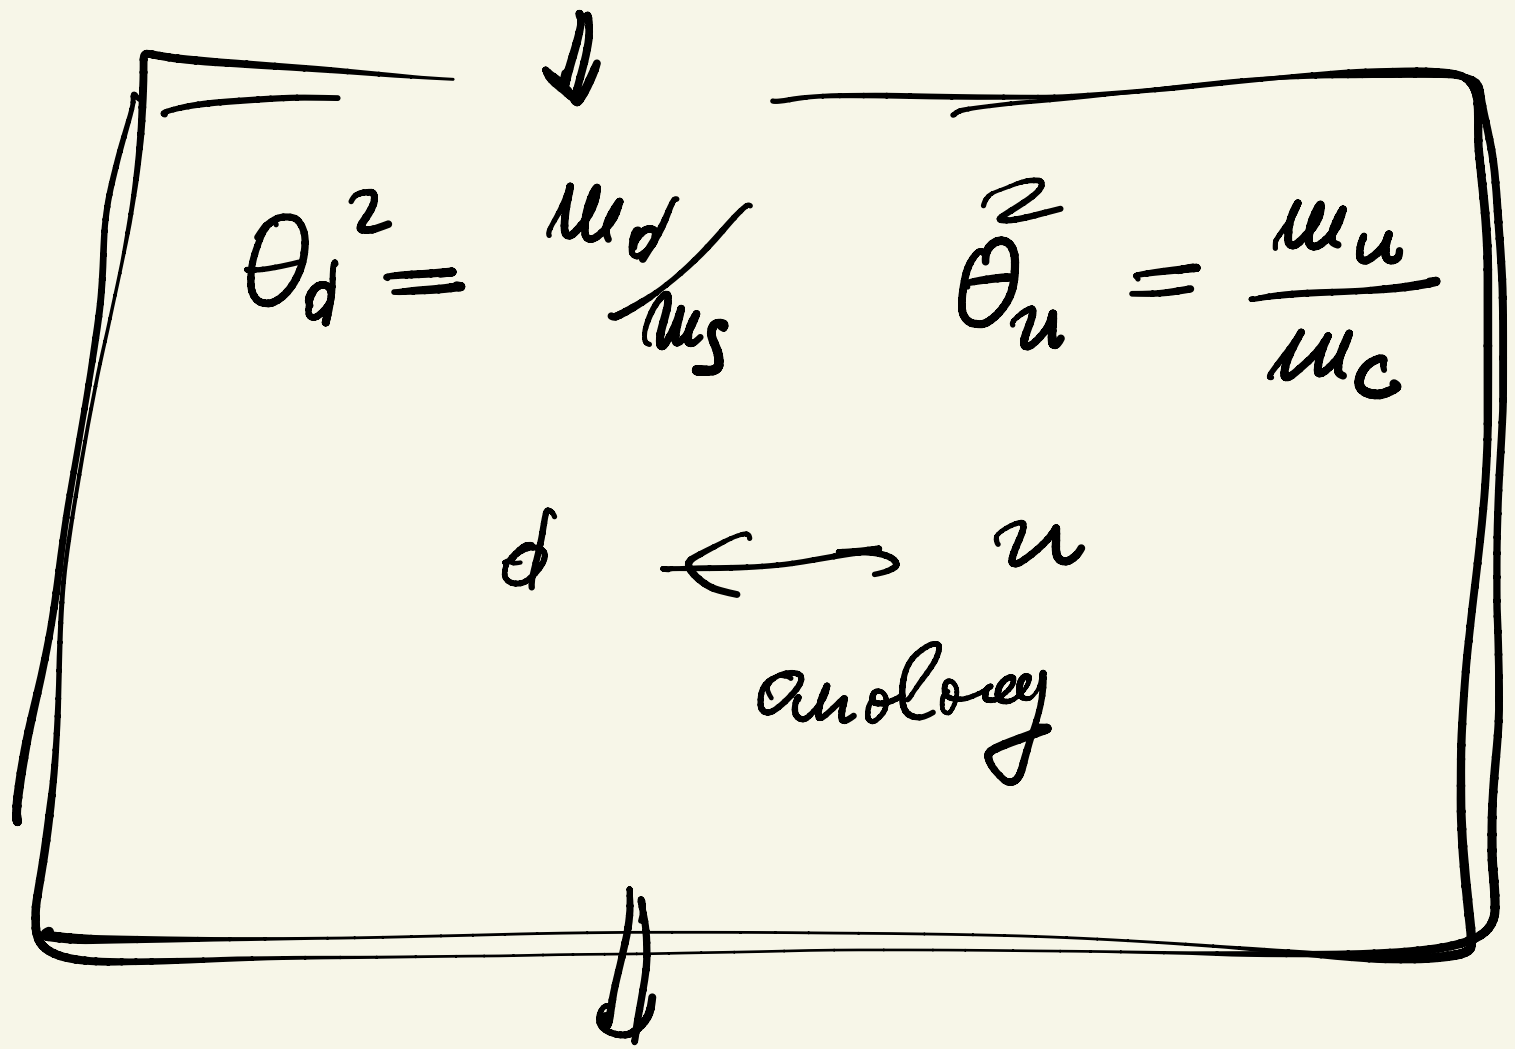 θ_d² = m_d/m_s θ_u² = m_u/m_c
d ↔ u
anology